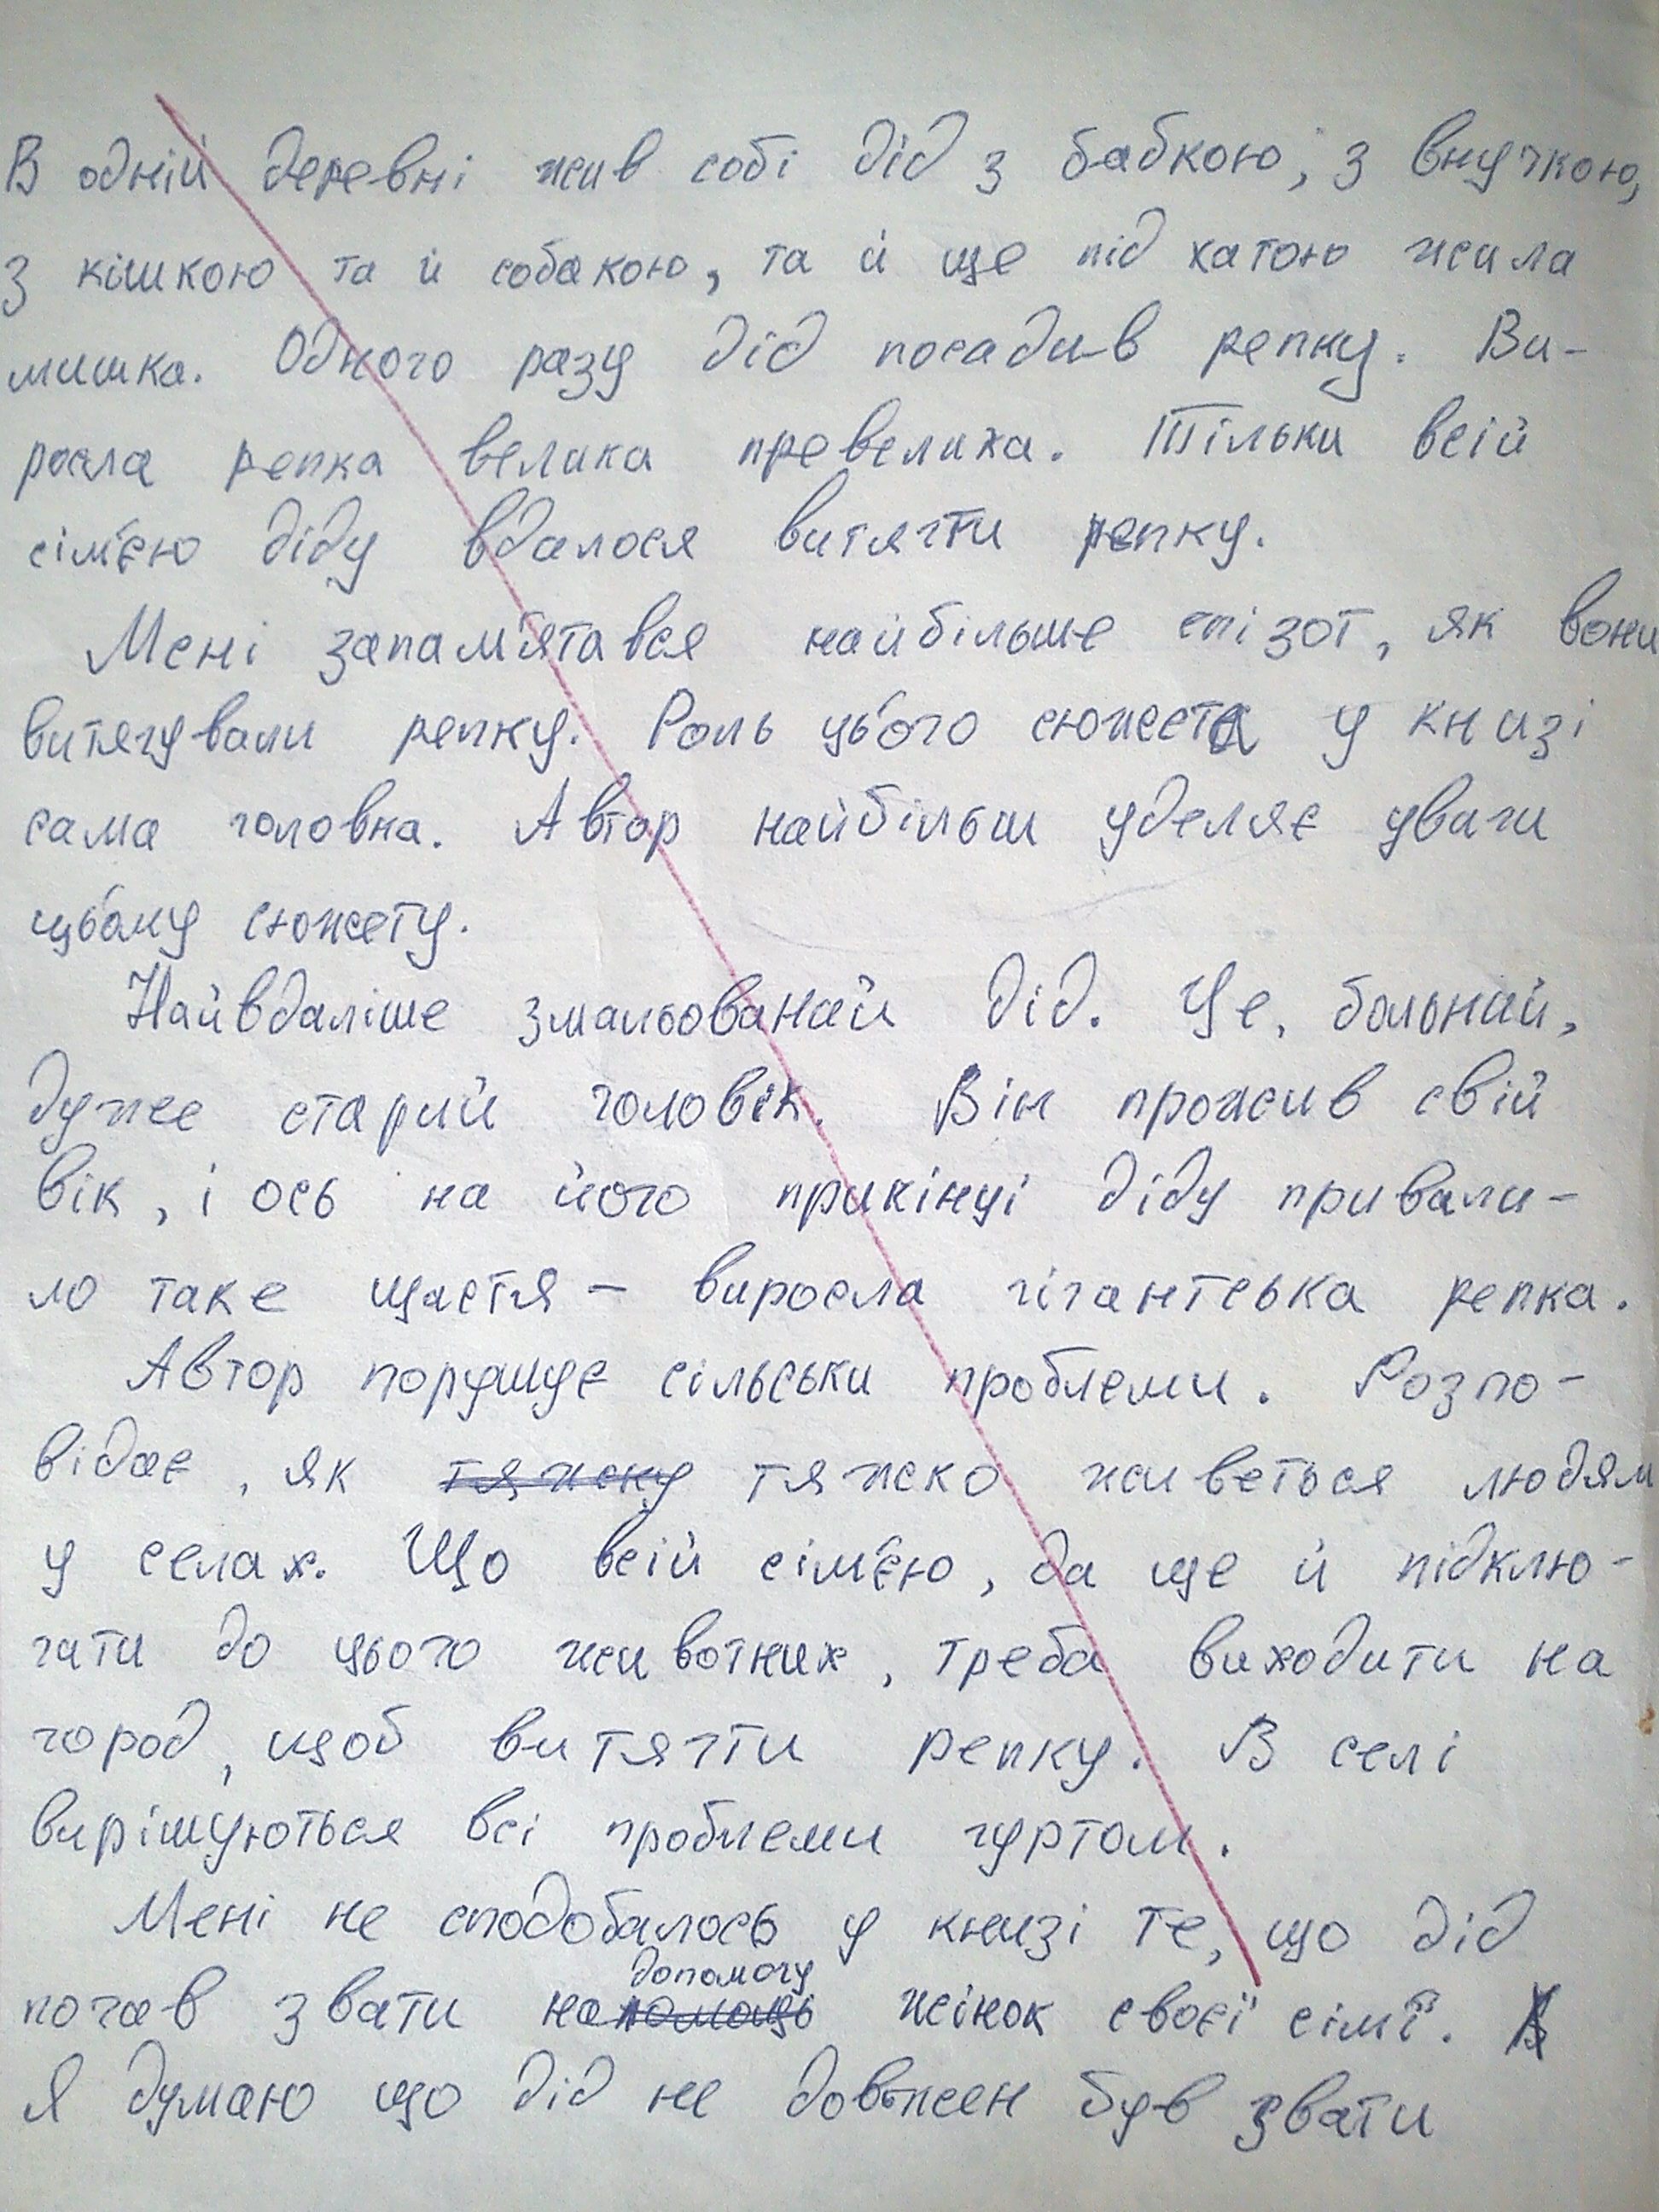 В одній деревні жив собі дід з бабкою, з внучкою,
з кішкою та й собакою, та й ще під хатою жила
мишка. Одного разу дід посадив репку. Ви-
росла репка велика превелика. Тільки всій
сім'єю діду вдалося витягти репку.
Мені запам'ятався найбільше епізот, як вони
витягували репку. Роль ць'ого сюжета у книзі
сама головна. Автор найбільш уделяє уваги
ць'ому сюжету.
Найвдаліше змальованай дід. Це, больний,
дуже старий чоловік. Він прожив свій
вік, і ось на його прикінці діду привали-
ло таке щастя - виросла гігантська репка.
Автор порушує сільськи проблеми. Розпо-
відає, як тяжку тяжко живеться людям
у селах. Що всій сім'єю, да ще й підклю-
чати до цього животних, треба виходити на
город, щоб витягти репку. В селі
вирішуються всі проблеми гуртом.
Мені не сподобалось у книзі те, що дід
допомогу
почав звати на помощь жінок своєї сім'ї.
Я думаю що дід не довжен був звати